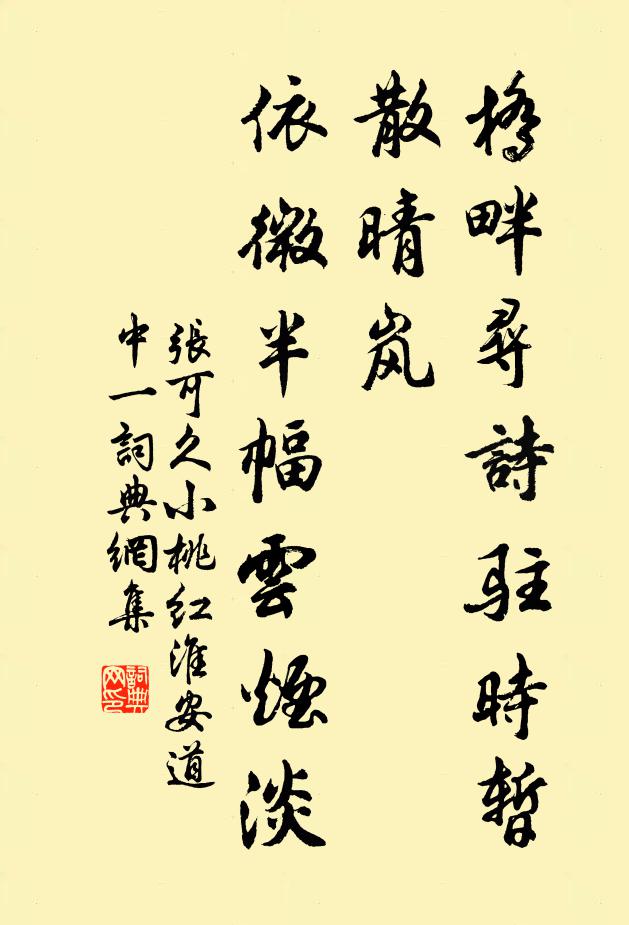 橋畔尋詩駐時暫
散晴岚
依微半幅雲煙淡
張可久小桃紅淮安道
中一詞典網集
詞典
网印